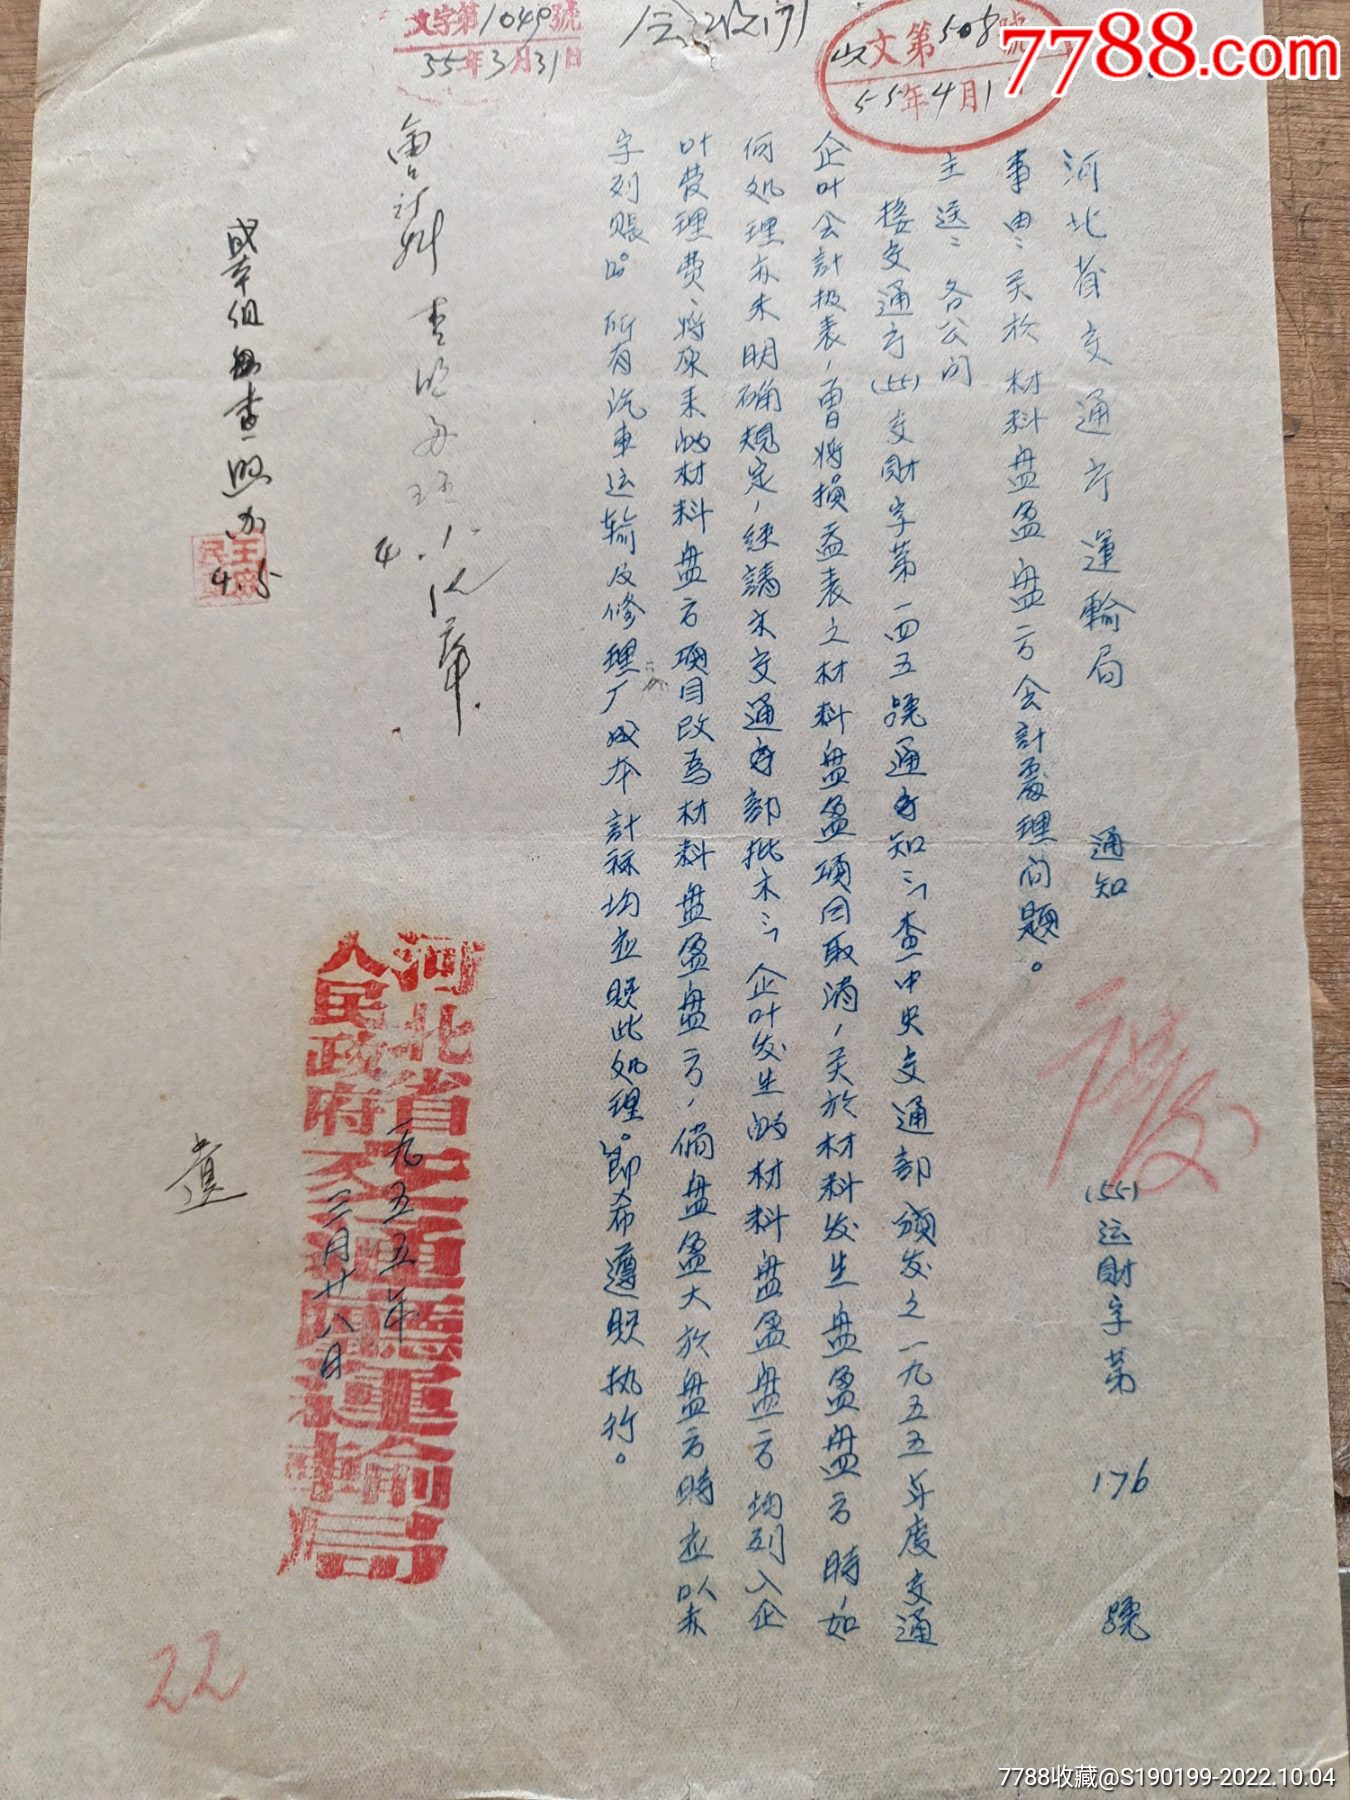 7788.com
文字第1049號
55年3月31日
收文第508號
55年4月1
河北省交通厅運輸局 通知 (55)运財字第 176 號
事由：关於材料盘盈盘亏会計處理问題。
主送：各公司
接交通厅(55)交財字第一四五號通知：「查中央交通部頒发之一九五五年度交通
企叶会計报表，曾将損益表之材料盘盈項目取消，关於材料发生盘盈盘亏時，如
何処理亦未明确規定，经請示交通部批示：「企叶发生的材料盘盈盘亏均列入企
叶管理費，将原来的材料盘亏項目改為材料盘盈盘亏，倘盘盈大於盘亏時应以赤
字列賬。」所有汽車运輸及修理厂成本計算均应照此処理。」即希遵照执行。
河北省
人民政府
交通廳運輸局
一九五五年
三月廿八日
成本组
查照办
4.5
22
7788收藏@S190199-2022.10.04